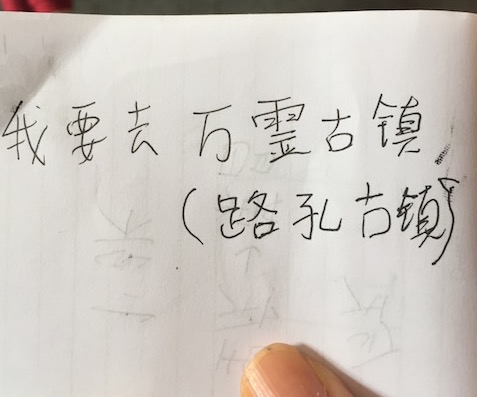 我要去万霊古镇
(路孔古镇)